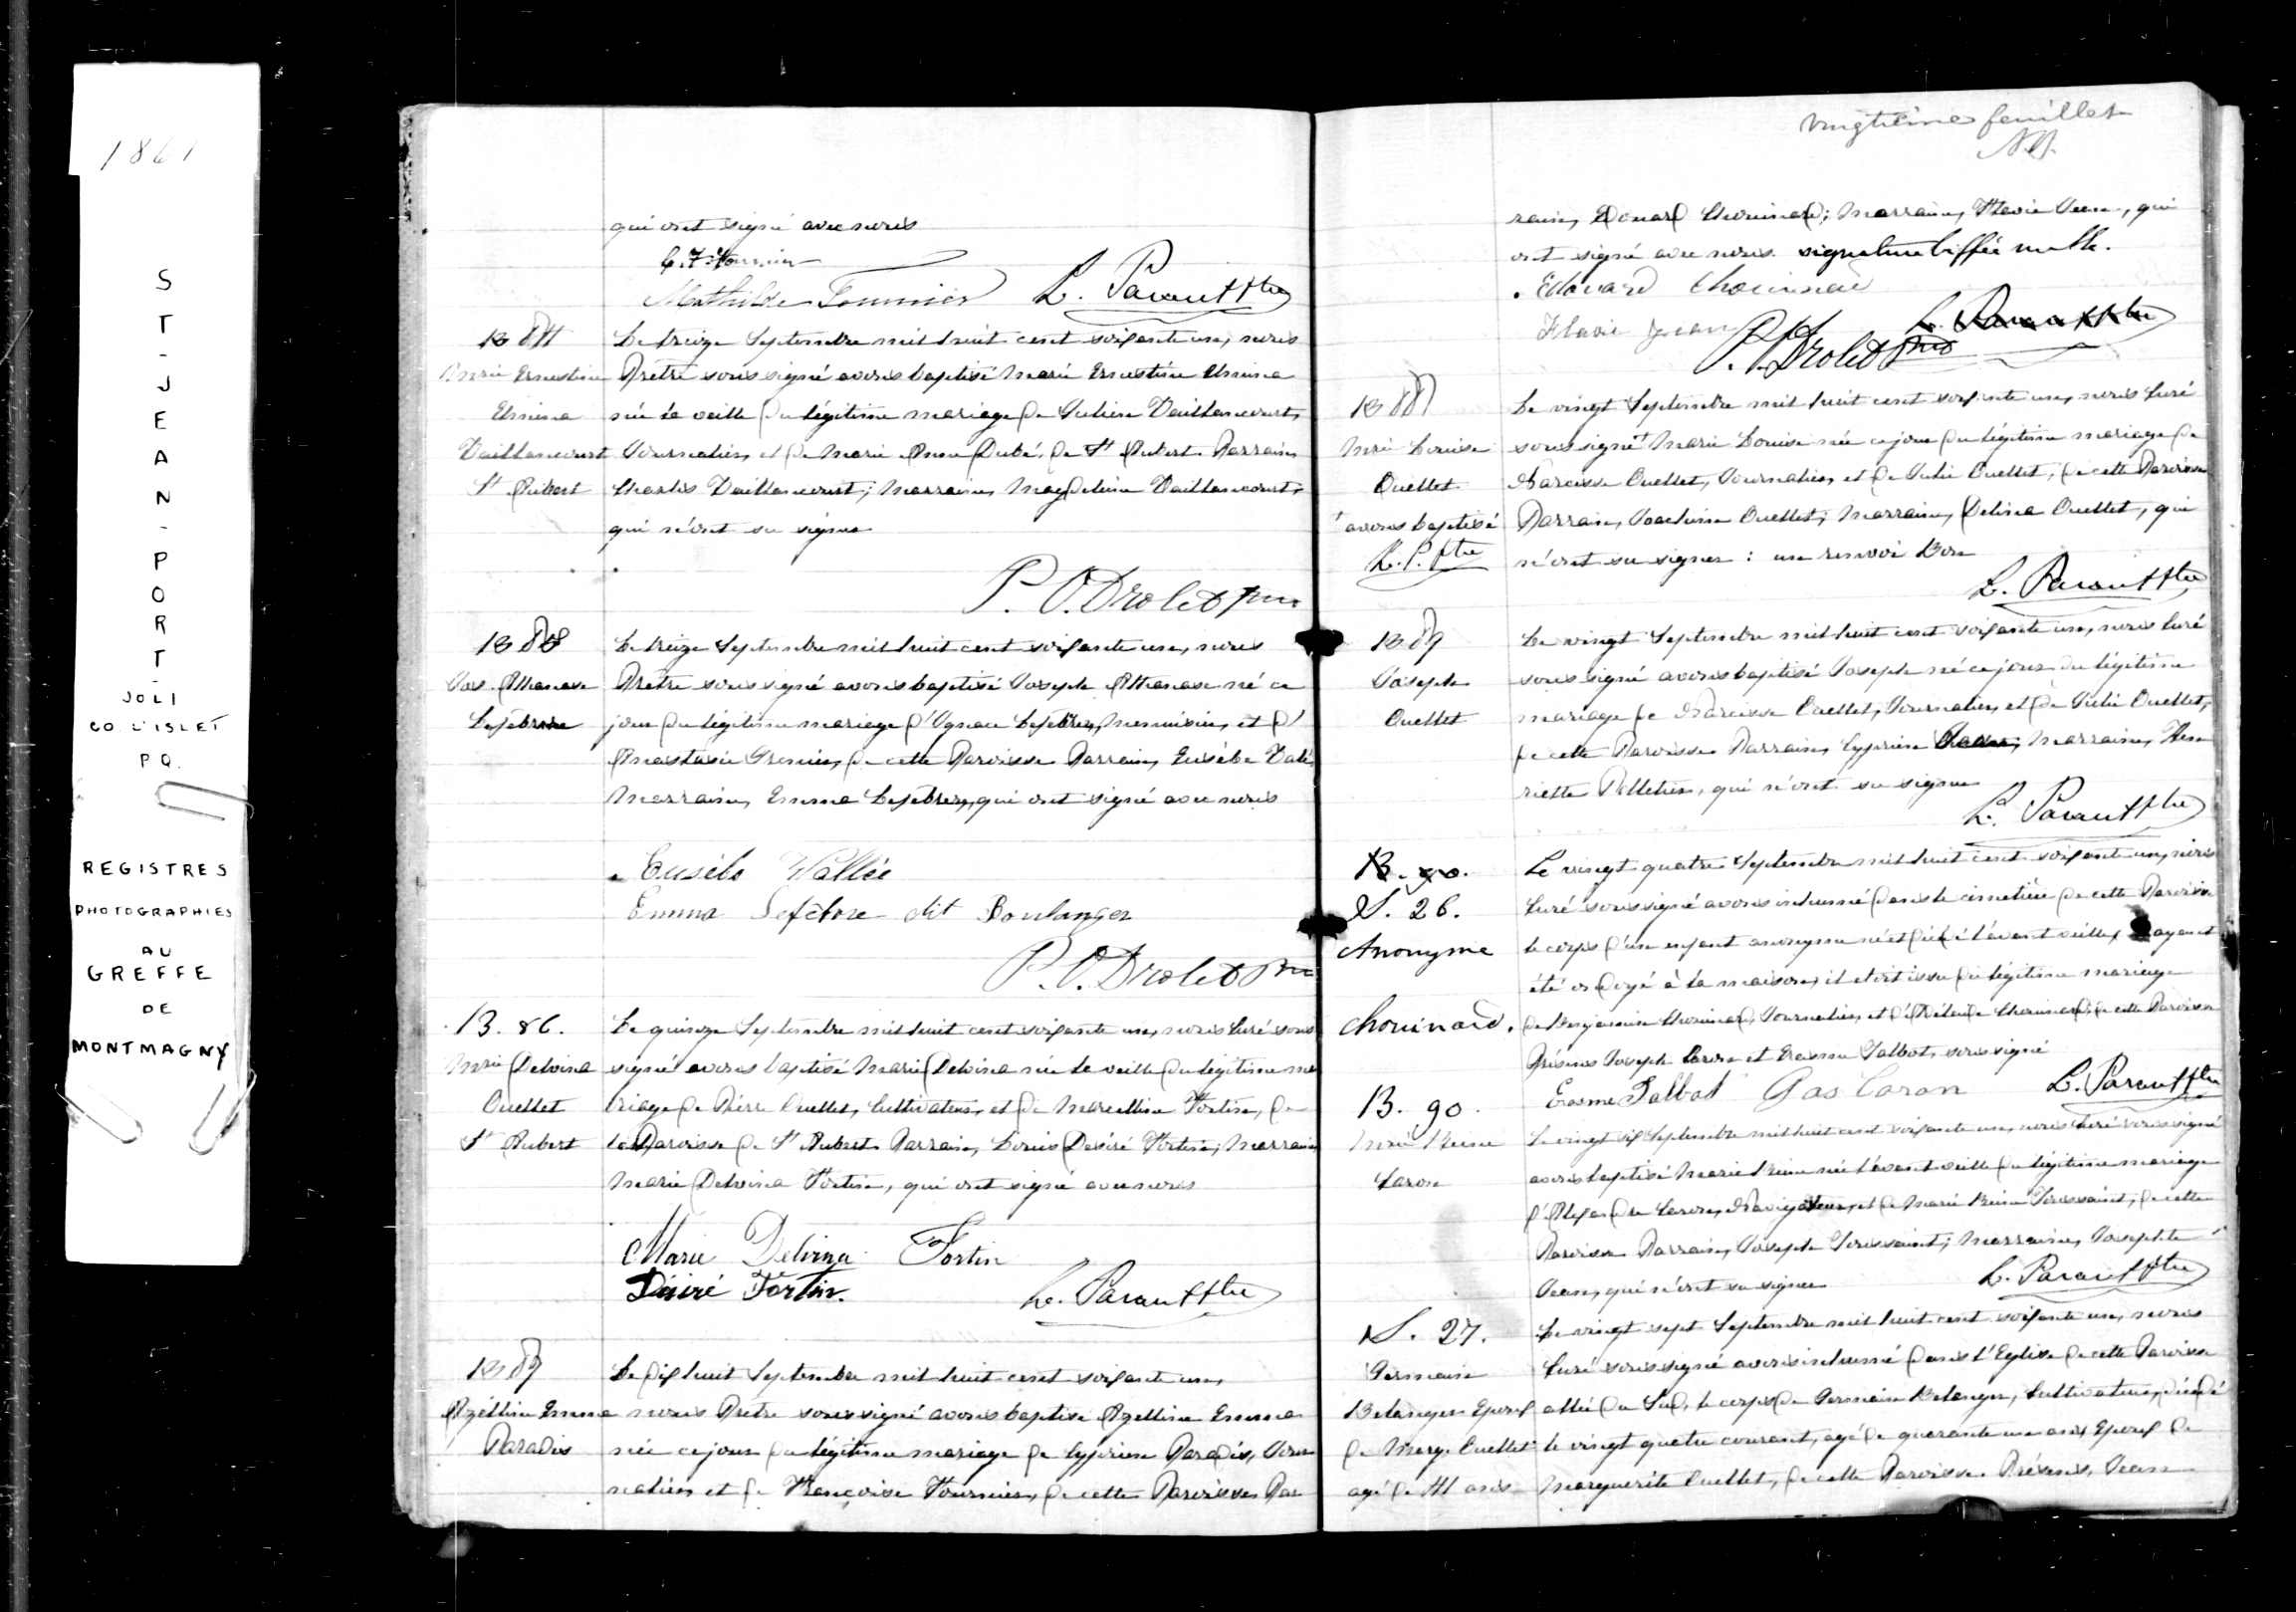 1861
ST-JEAN-PORT-
JOLI
CO L'ISLET
P.Q.
REGISTRES
PHOTOGRAPHIES
AU
GREFFE
DE
MONTMAGNY
qui ont signé avec nous
Mathilde Fournier L. Parant Ptre
B 84
Mrie Ernestine
Elmina
Vaillancourt
St Aubert
Le treize Septembre mil huit cent soixante un, nous
Prêtre soussigné avons baptisé Marie Ernestine Elmina
née la veille du légitime mariage de Julien Vaillancourt,
Journalier, et de Marie Anne Dubé, de St Aubert. Parrain,
Charles Vaillancourt; Marraine, Magdeleine Vaillancourt,
qui n'ont su signer
P. O. Drolet Ptre
B 85
Jos. Athanase
Lefebvre
Le treize Septembre mil huit cent soixante un, nous
Prêtre soussigné avons baptisé Joseph Athanase né ce
jour du légitime mariage d'Ignace Lefebvre, Menuisier, et d'
Anastasie Grenier, de cette Paroisse. Parrain, Eusèbe Valé,
Marraine, Emma Lefebvre, qui ont signé avec nous
Eusèbe Vallée
Emma Lefebvre dit Boulanger
P. O. Drolet Ptre
B. 86.
Mrie Delvina
Ouellet
St Aubert
Le quinze Septembre mil huit cent soixante un, nous Curé sous
signé avons baptisé Marie Delvina née la veille du légitime ma
riage de Pierre Ouellet, Cultivateur, et de Marcelline Fortin, de
la Paroisse de St Aubert. Parrain, Louis Désiré Fortin; Marraine
Marie Delvina Fortin, qui ont signé avec nous
Marie Delvina Fortin
Désiré Fortin. L. Parant Ptre
B 87
Azelline Emma
Paradis
Le dix huit Septembre mil huit cent soixante un,
nous Prêtre soussigné avons baptisé Azelline Emma
née ce jour du légitime mariage de Cyprien Paradis, Jour
nalier, et de Françoise Fournier, de cette Paroisse. Par
vingtième feuillet
rain, Edouard Chouinard; Marraine, Flavie Jean, qui
ont signé avec nous. signature biffée nulle.
Edouard Chouinard
Flavie Jean L. Parant Ptre
P. O. Drolet Ptre
B 88
Mrie Louise
Ouellet
+ avons baptisé
L. P. Ptre
Le vingt Septembre mil huit cent soixante un, nous Curé
soussigné + Marie Louise née ce jour du légitime mariage de
Narcisse Ouellet, Journalier, et de Julie Ouellet, de cette Paroisse
Parrain, Joachim Ouellet; Marraine, Delina Ouellet, qui
n'ont su signer : un renvoi bon
L. Parant Ptre
B 89
Joseph
Ouellet
Le vingt Septembre mil huit cent soixante un, nous Curé
soussigné avons baptisé Joseph né ce jour du légitime
mariage de Narcisse Ouellet, Journalier, et de Julie Ouellet,
de cette Paroisse. Parrain, Cyprien Marraine, Hen
riette Pelletier, qui n'ont su signer
L. Parant Ptre
B. 90.
S. 26.
Anonyme
Chouinard.
Le vingt quatre Septembre mil huit cent soixante un, nous
Curé soussigné avons inhumé dans le cimetière de cette Paroisse
le corps d'un enfant anonyme né et décédé l'avant veille, ayant
été ondoyé à la maison, il était issu du légitime mariage
de Benjamin Chouinard, Journalier, et d'Adélaide Chouinard, de cette Paroisse
Présens Joseph Caron et Erasme Talbot, soussigné
Erasme Talbot Jos Caron L. Parant Ptre
B. 90.
Mrie Reine
Caron
Le vingt six Septembre mil huit cent soixante un, nous Curé soussigné
avons baptisé Marie Reine née l'avant veille du légitime mariage
d'Alexandre Caron, Navigateur, et de Marie Reine Toussaint, de cette
Paroisse. Parrain, Joseph Toussaint; Marraine, Josephte
Jean, qui n'ont su signer L. Parant Ptre
S. 27.
Germain
Belanger Epoux
de Marg. Ouellet
agé de 41 ans
Le vingt sept Septembre mil huit cent soixante un, nous
Curé soussigné avons inhumé dans l'Eglise de cette Paroisse
allée du Sud, le corps de Germain Belanger, Cultivateur, décédé
le vingt quatre courant, agé de quarante un ans, Epoux de
Marguerite Ouellet, de cette Paroisse. Présens, Jean